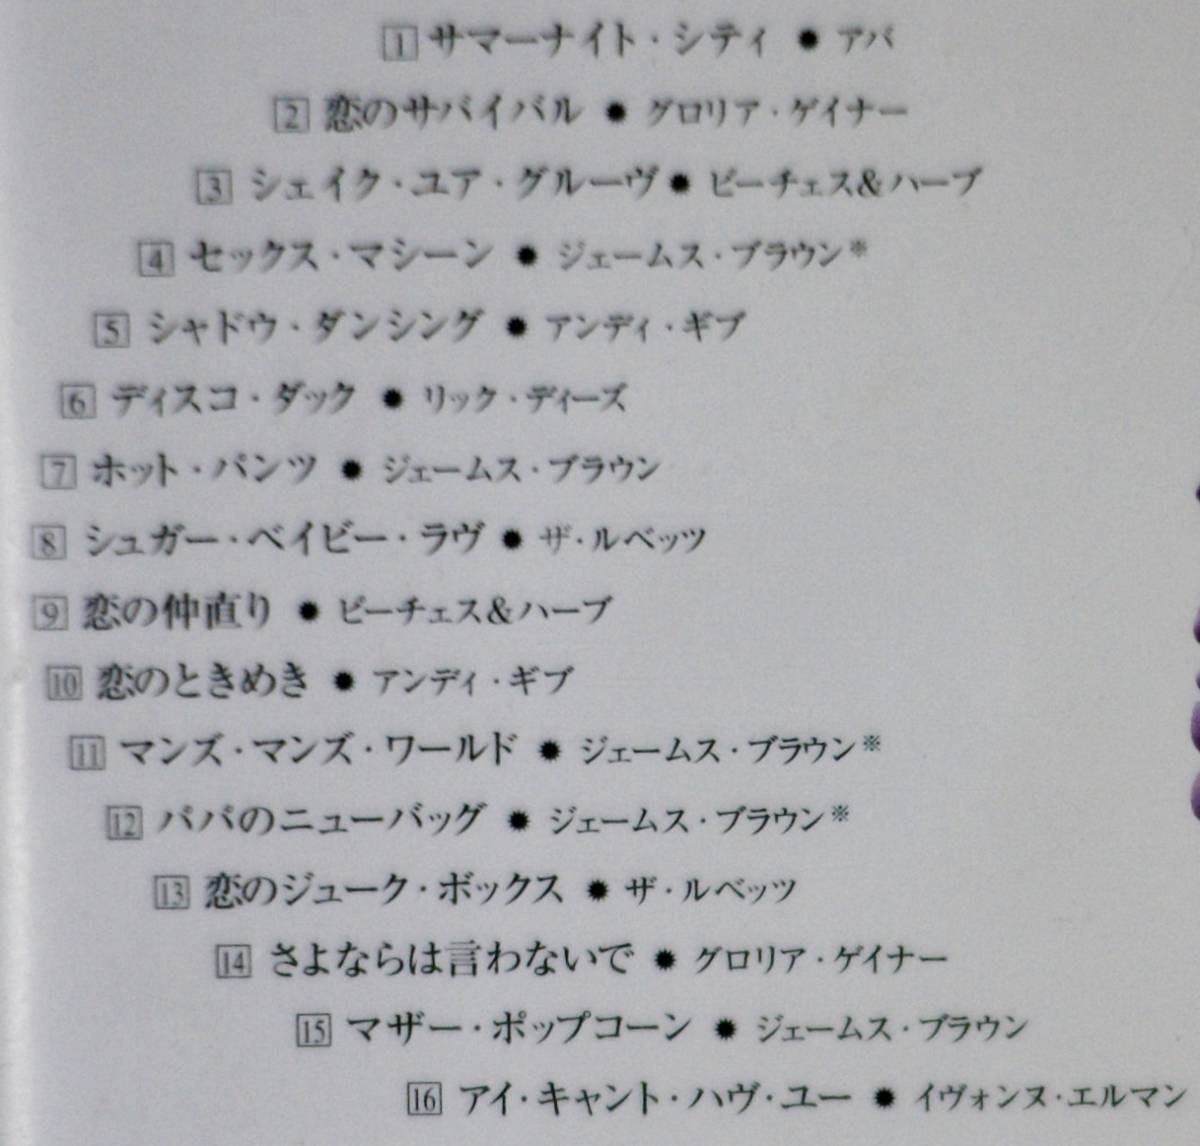 1 サマーナイト・シティ ● アバ
2 恋のサバイバル ● グロリア・ゲイナー
3 シェイク・ユア・グルーヴ ● ピーチェス&ハーブ
4 セックス・マシーン ● ジェームス・ブラウン※
5 シャドウ・ダンシング ● アンディ・ギブ
6 ディスコ・ダック ● リック・ディーズ
7 ホット・パンツ ● ジェームス・ブラウン
8 シュガー・ベイビー・ラヴ ● ザ・ルベッツ
9 恋の仲直り ● ピーチェス&ハーブ
10 恋のときめき ● アンディ・ギブ
11 マンズ・マンズ・ワールド ● ジェームス・ブラウン※
12 パパのニューバッグ ● ジェームス・ブラウン※
13 恋のジューク・ボックス ● ザ・ルベッツ
14 さよならは言わないで ● グロリア・ゲイナー
15 マザー・ポップコーン ● ジェームス・ブラウン
16 アイ・キャント・ハヴ・ユー ● イヴォンヌ・エルマン